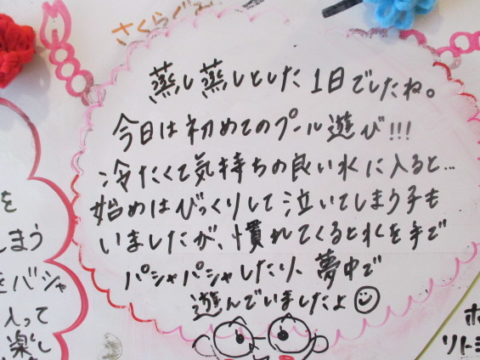 さくらぐみ
蒸し蒸しとした1日でしたね。
今日は初めてのプール遊び!!!
冷たくて気持ちの良い水に入ると…
始めはびっくりして泣いてしまう子も
いましたが、慣れてくると水を手で
パシャパシャしたり、夢中で
遊んでいましたよ
を
しまう
をバシャ
入って
楽し
ホ
リトミ